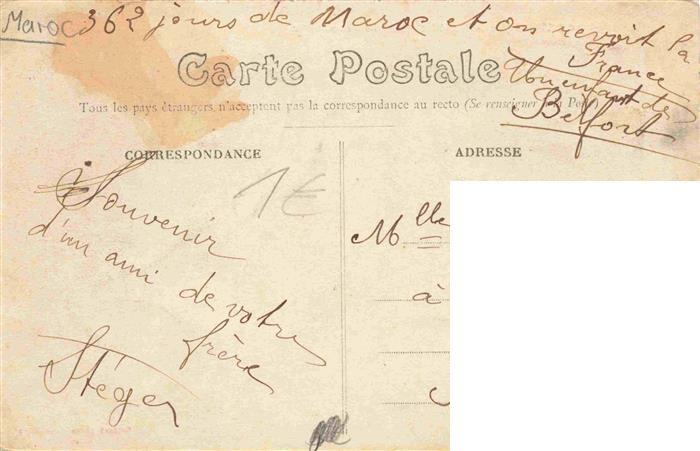 Maroc 362 jours de Maroc et on revoit la
France
Un enfant de
Belfort
Carte Postale
Tous les pays étrangers n'acceptent pas la correspondance au recto (Se renseigner à la Poste)
CORRESPONDANCE
ADRESSE
1€
Souvenir
d'un ami de votre
frère
Stéger
Mlle
à